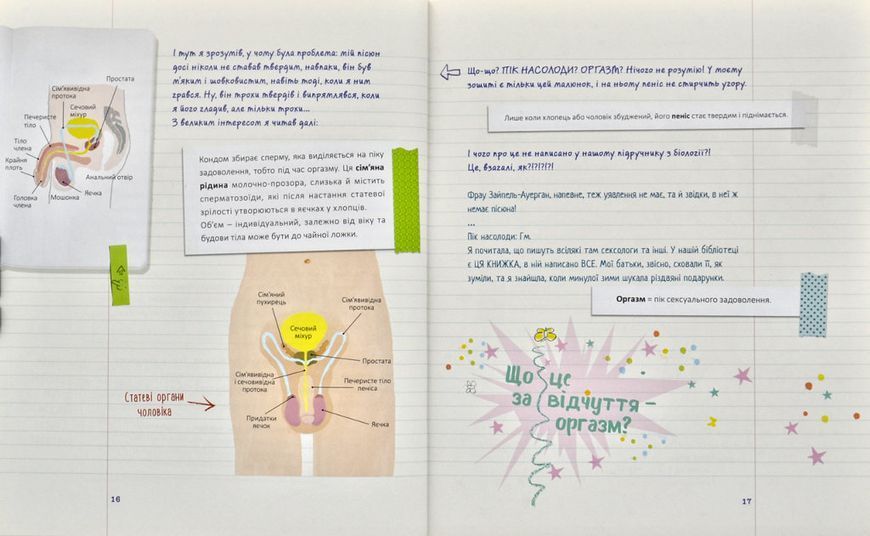 Простата
Сім'явивідна
протока
Сечовий
міхур
Печеристе
тіло
Тіло
члена
Крайня
плоть
Головка
члена
Мошонка
Яєчка
Анальний отвір
І тут я зрозумів, у чому була проблема: мій пісюн
досі ніколи не ставав твердим, навпаки, він був
м'яким і шовковистим, навіть тоді, коли я ним
грався. Ну, він трохи твердів і випрямлявся, коли
я його гладив, але тільки трохи...
З великим інтересом я читав далі:
Кондом збирає сперму, яка виділяється на піку
задоволення, тобто під час оргазму. Ця сім'яна
рідина молочно-прозора, слизька й містить
сперматозоїди, які після настання статевої
зрілості утворюються в яєчках у хлопців.
Об'єм – індивідуальний, залежно від віку та
будови тіла може бути до чайної ложки.
Статеві органи
чоловіка
Сім'яний
пухирець
Сім'явивідна
протока
Сечовий
міхур
Простата
Сім'явивідна
і сечовивідна
протока
Печеристе тіло
пеніса
Придатки
яєчок
Яєчка
16
Що-що? ПІК НАСОЛОДИ? ОРГАЗМ? Нічого не розумію! У моєму
зошиті є тільки цей малюнок, і на ньому пеніс не стирчить угору.
Лише коли хлопець або чоловік збуджений, його пеніс стає твердим і піднімається.
І чого про це не написано у нашому підручнику з біології?!
Це, взагалі, як?!?!?!?!
Фрау Зайпель-Ауерган, напевне, теж уявлення не має, та й звідки, в неї ж
немає пісюна!
...
Пік насолоди: Гм.
Я почитала, що пишуть всілякі там сексологи та інші. У нашій бібліотеці
є ЦЯ КНИЖКА, в ній написано ВСЕ. Мої батьки, звісно, сховали її, як
зуміли, та я знайшла, коли минулої зими шукала різдвяні подарунки.
Оргазм = пік сексуального задоволення.
Що це
за відчуття –
оргазм?
17